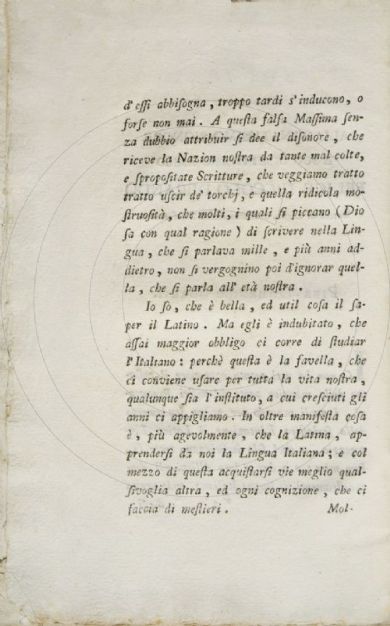 d'essi abbisogna, troppo tardi s'inducono, o
forse non mai. A questa falsa Massima sen-
za dubbio attribuir si dee il disonore, che
riceve la Nazion nostra da tante mal colte,
e spropositate Scritture, che veggiamo tratto
tratto uscir de' torchj, e quella ridicola mo-
struosità, che molti, i quali si piccano (Dio
sa con qual ragione) di scrivere nella Lin-
gua, che si parlava mille, e più anni ad-
dietro, non si vergognino poi d'ignorar quel-
la, che si parla all' età nostra.
Io so, che è bella, ed util cosa il sa-
per il Latino. Ma egli è indubitato, che
assai maggior obbligo ci corre di studiar
l'Italiano: perchè questa è la favella, che
ci conviene usare per tutta la vita nostra,
qualunque sia l'instituto, a cui cresciuti gli
anni ci appigliamo. In oltre manifesta cosa
è, più agevolmente, che la Latina, ap-
prendersi da noi la Lingua Italiana; e col
mezzo di questa acquistarsi vie meglio qual-
sivoglia altra, ed ogni cognizione, che ci
faccia di mestieri.
Mol-